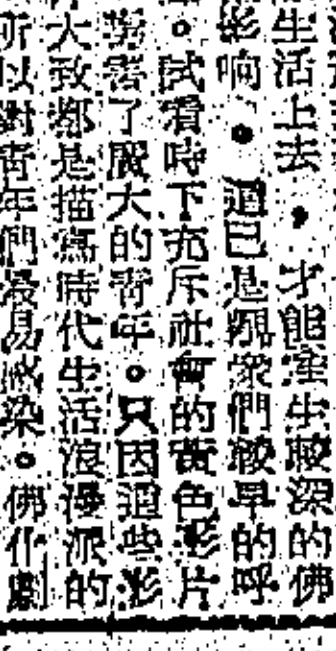 生活上去，才能產生較深的佛
影响。這已是觀衆們較早的呼
。試看時下充斥社會的黃色影片
害了廣大的青年。只因這些影
大致都是描寫時代生活浪漫派的
所以對青年們最易感染。佛化劇